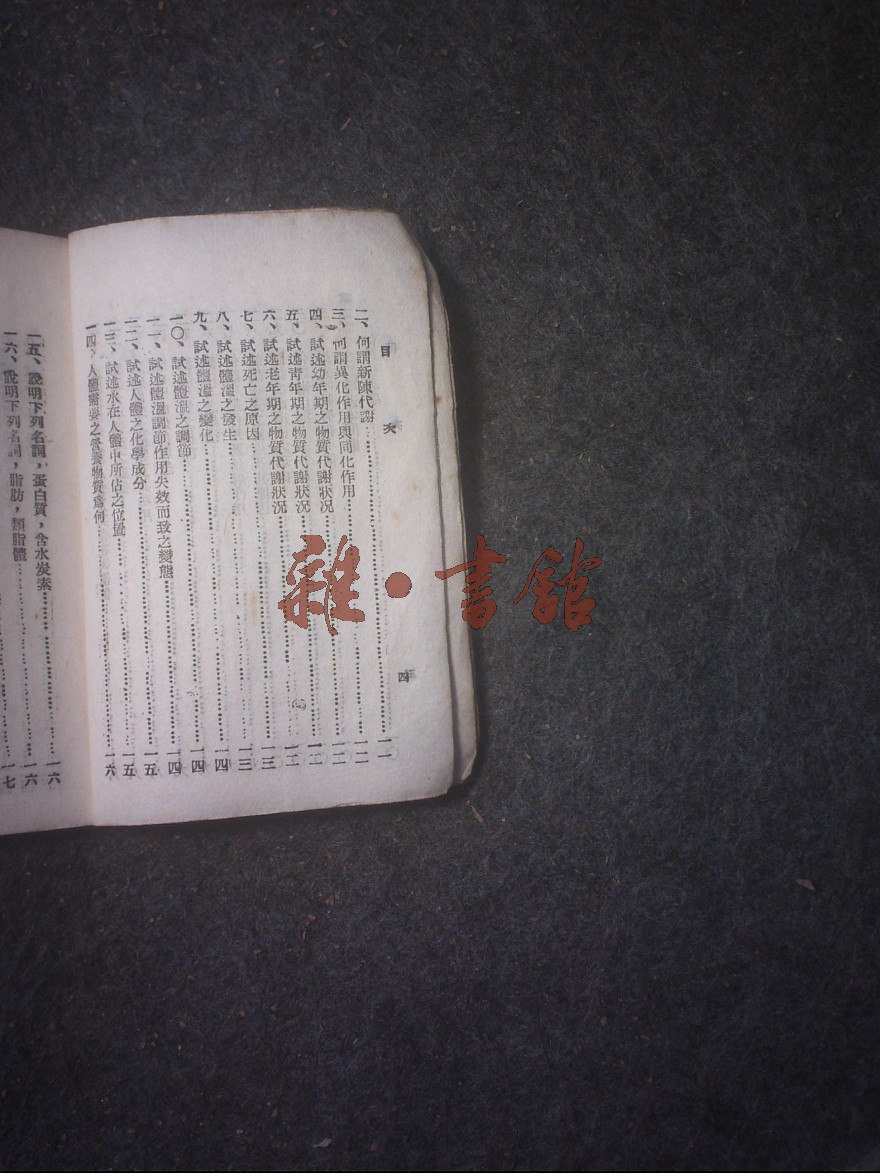 目次
四
二、何謂新陳代謝……一一
三、何謂異化作用與同化作用……一二
四、試述幼年期之物質代謝狀況……一二
五、試述靑年期之物質代謝狀況……一二
六、試述老年期之物質代謝狀況……一三
七、試述死亡之原因……一三
八、試述體溫之發生……一四
九、試述體溫之變化……一四
一〇、試述體溫之調節……一四
一一、試述體溫調節作用失效而致之變態……一五
一二、試述人體之化學成分……一五
一三、試述水在人體中所佔之位置……一六
一四、人體需要之營養物質爲何
一五、說明下列名詞，蛋白質，含水炭素……一六
一六、說明下列名詞，脂肪，類脂體……一六
一七
雜·書館